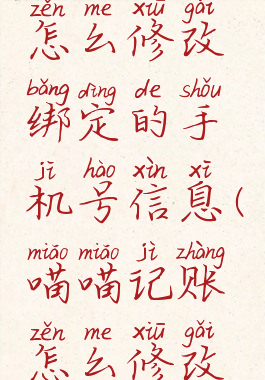 zěn me xiū gǎi
怎么修改
bǎng dìng de shǒu
绑定的手
jī hào xìn xī
机号信息(
miāo miāo jì zhàng
喵喵记账
zěn me xiū gǎi
怎么修改